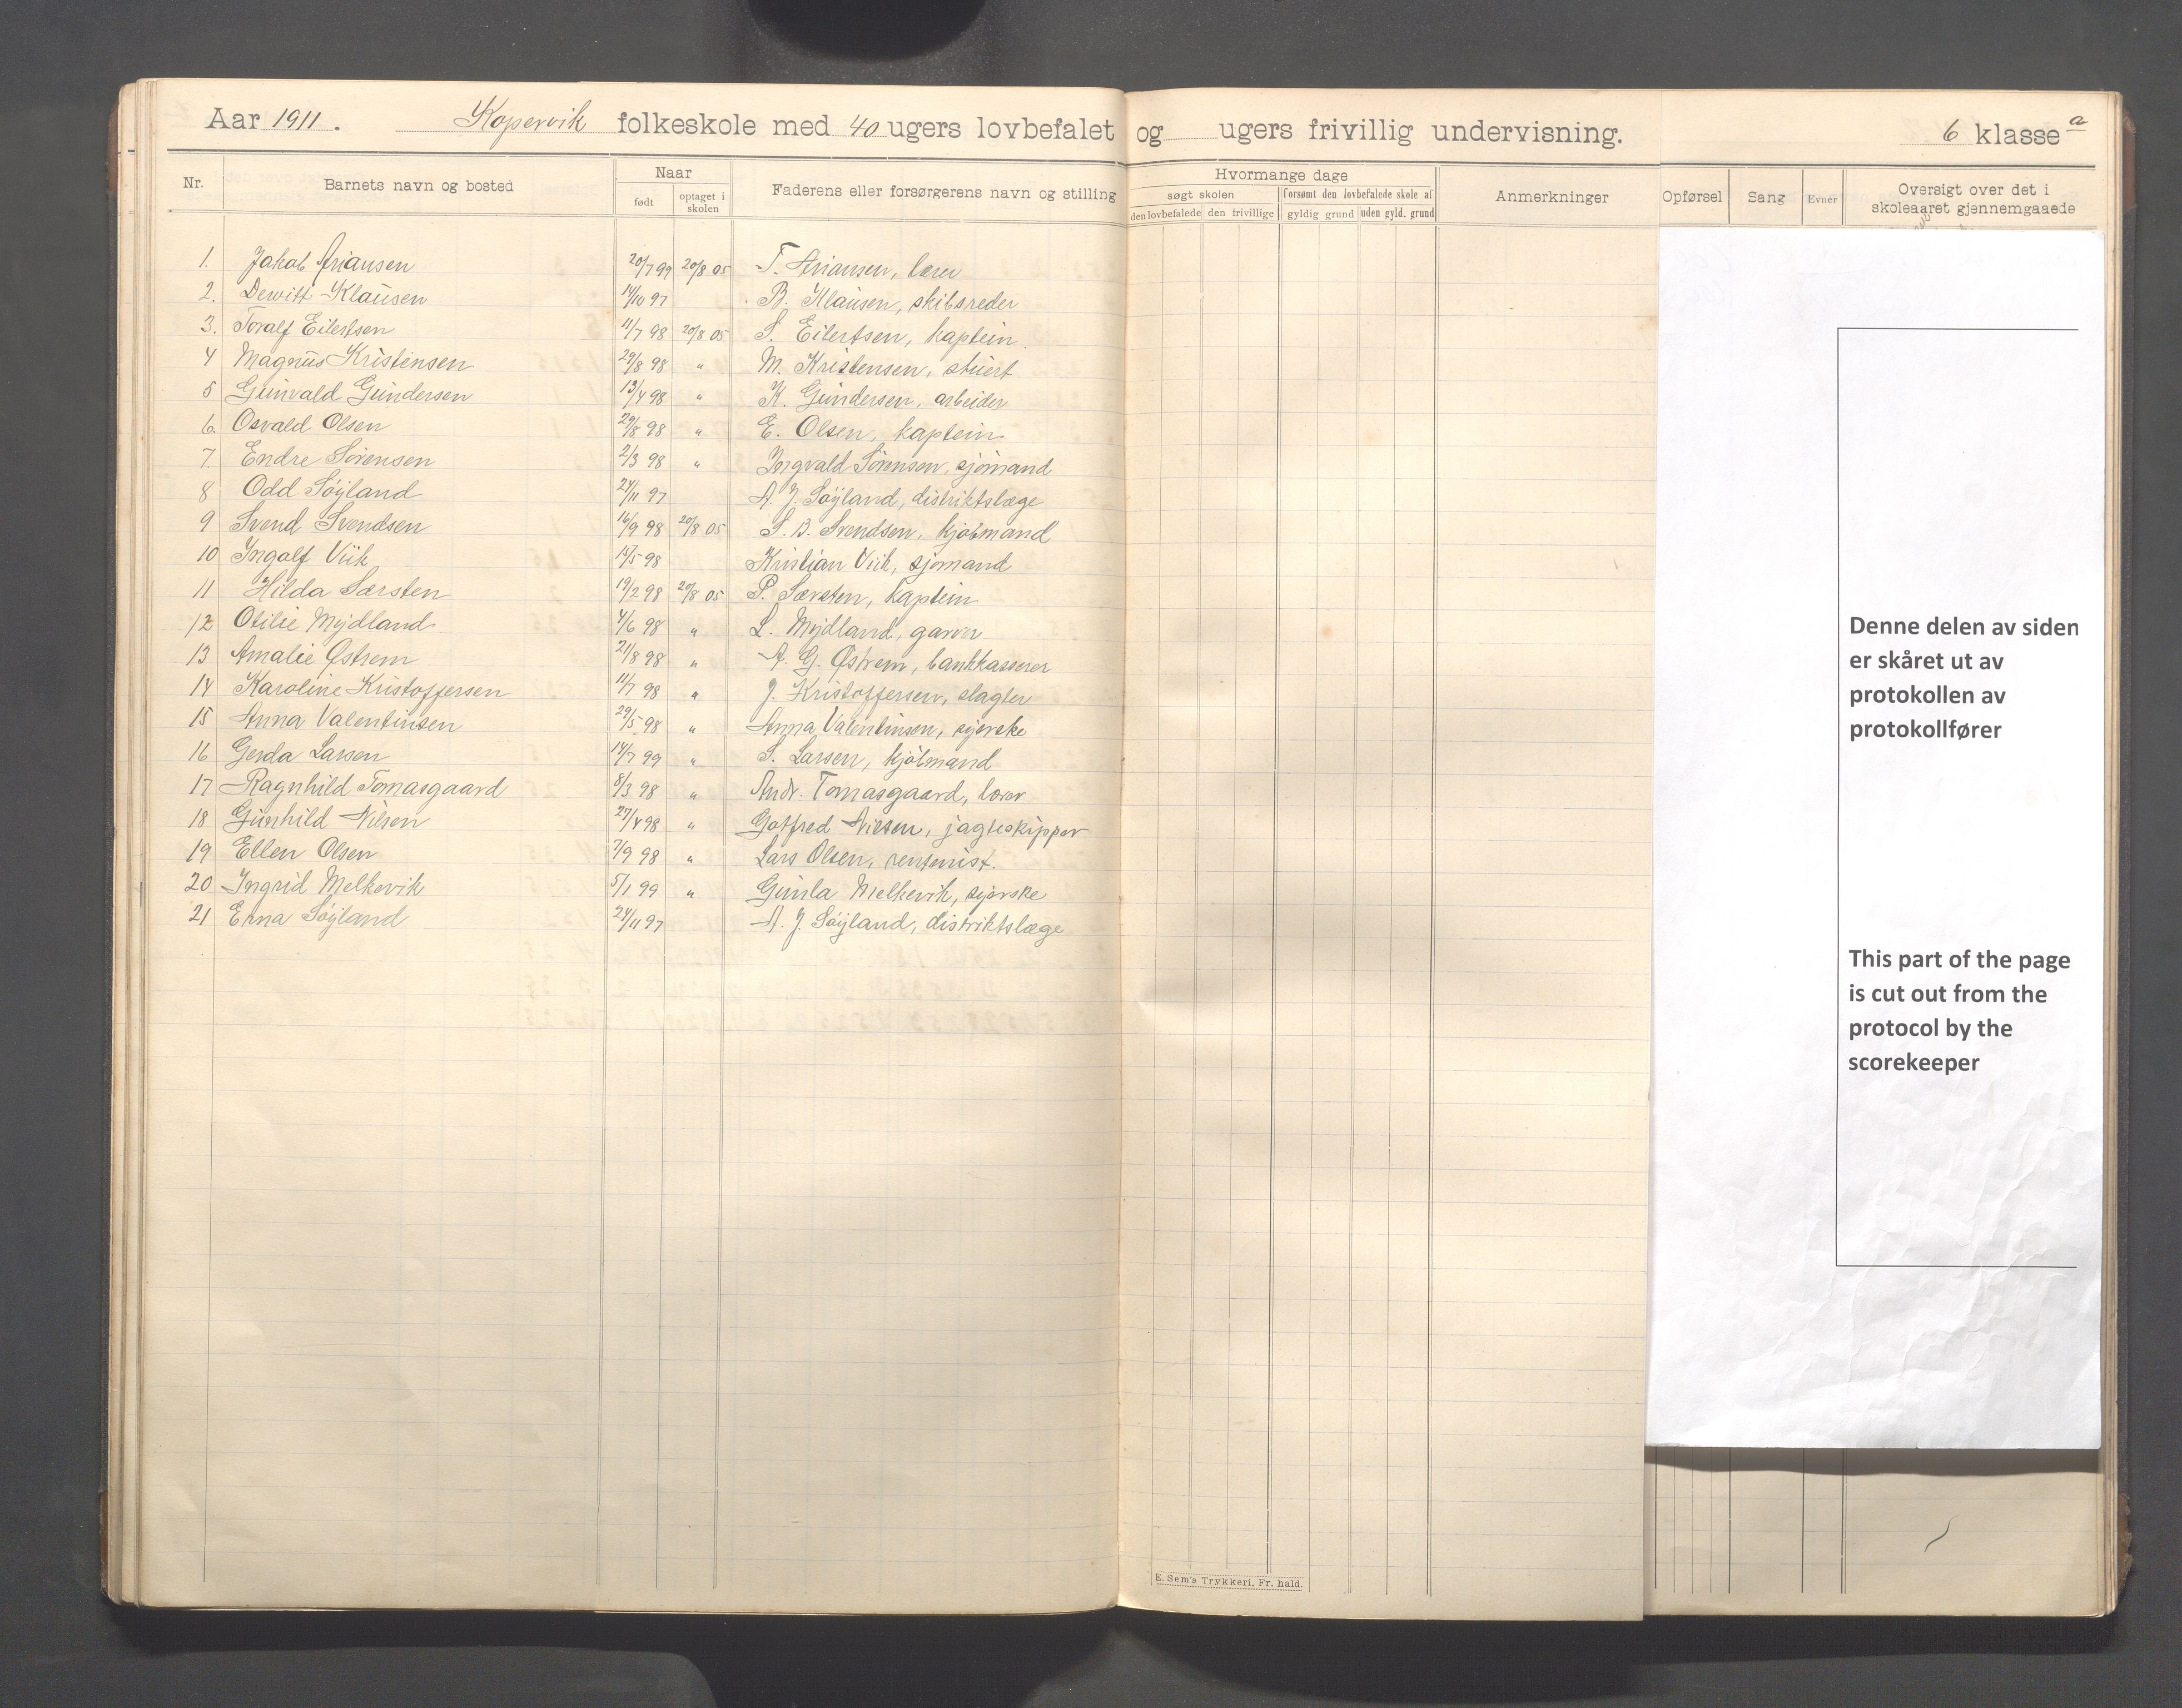 Aar 1911. Kopervik folkeskole med 40 ugers lovbefalet og ugers frivillig undervisning. 6 klasse a
Nr. Barnets navn og bosted Naar Faderens eller forsørgerens navn og stilling Hvormange dage Anmerkninger Opførsel Sang Evner Oversigt over det i skoleaaret gjennemgaaede
født optaget i skolen søgt skolen forsømt den lovbefalede skole af
den lovbefalede den frivillige gyldig grund uden gyld. grund
1. Jakob Ariansen 20/7 99 20/8 05 T. Ariansen, lærer
2. Dewitt Klausen 14/10 97 B. Klausen, skibsreder
3. Toralf Eilertsen 11/7 98 20/8 05 S. Eilertsen, kaptein.
4 Magnus Kristensen 29/8 98 " M. Kristensen, stuert
5 Gunvald Gundersen 13/4 98 " K. Gundersen, arbeider
6. Osvald Olsen 29/8 98 " E. Olsen, kaptein
7. Endre Sørensen 2/3 98 " Ingvald Sørensen, sjømand
8 Odd Søyland 24/11 97 A. J. Søyland, distriktslæge
9 Svend Svendsen 16/9 98 20/8 05 S. B. Svendsen, kjøbmand
10 Ingolf Viik 15/5 98 Kristian Viik, sjømand
11 Hilda Sørsten 19/2 98 20/8 05 P. Sørsten, kaptein
12 Otilie Mydland 4/6 98 " L. Mydland, garver
13 Amalie Østrem 21/8 98 " A. G. Østrem, bankkasserer
14 Karoline Kristoffersen 11/7 98 " J. Kristoffersen, slagter
15 Anna Valentinsen 29/5 98 " Anna Valentinsen, syerske
16 Gerda Larsen 14/7 99 " S. Larsen, kjøbmand
17 Ragnhild Tomasgaard 8/3 98 " Andr. Tomasgaard, lærer
18 Gunhild Nilsen 27/4 98 " Gotfred Nilsen, jagteskipper
19 Ellen Olsen 7/9 98 " Lars Olsen, rentenist.
20 Ingrid Melkevik 5/1 99 " Gunla Melkevik, syerske
21 Erna Søyland 24/11 97 A. J. Søyland, distriktslæge
Denne delen av siden
er skåret ut av
protokollen av
protokollfører
This part of the page
is cut out from the
protocol by the
scorekeeper
E. Sem's Trykkeri, Fr. hald.